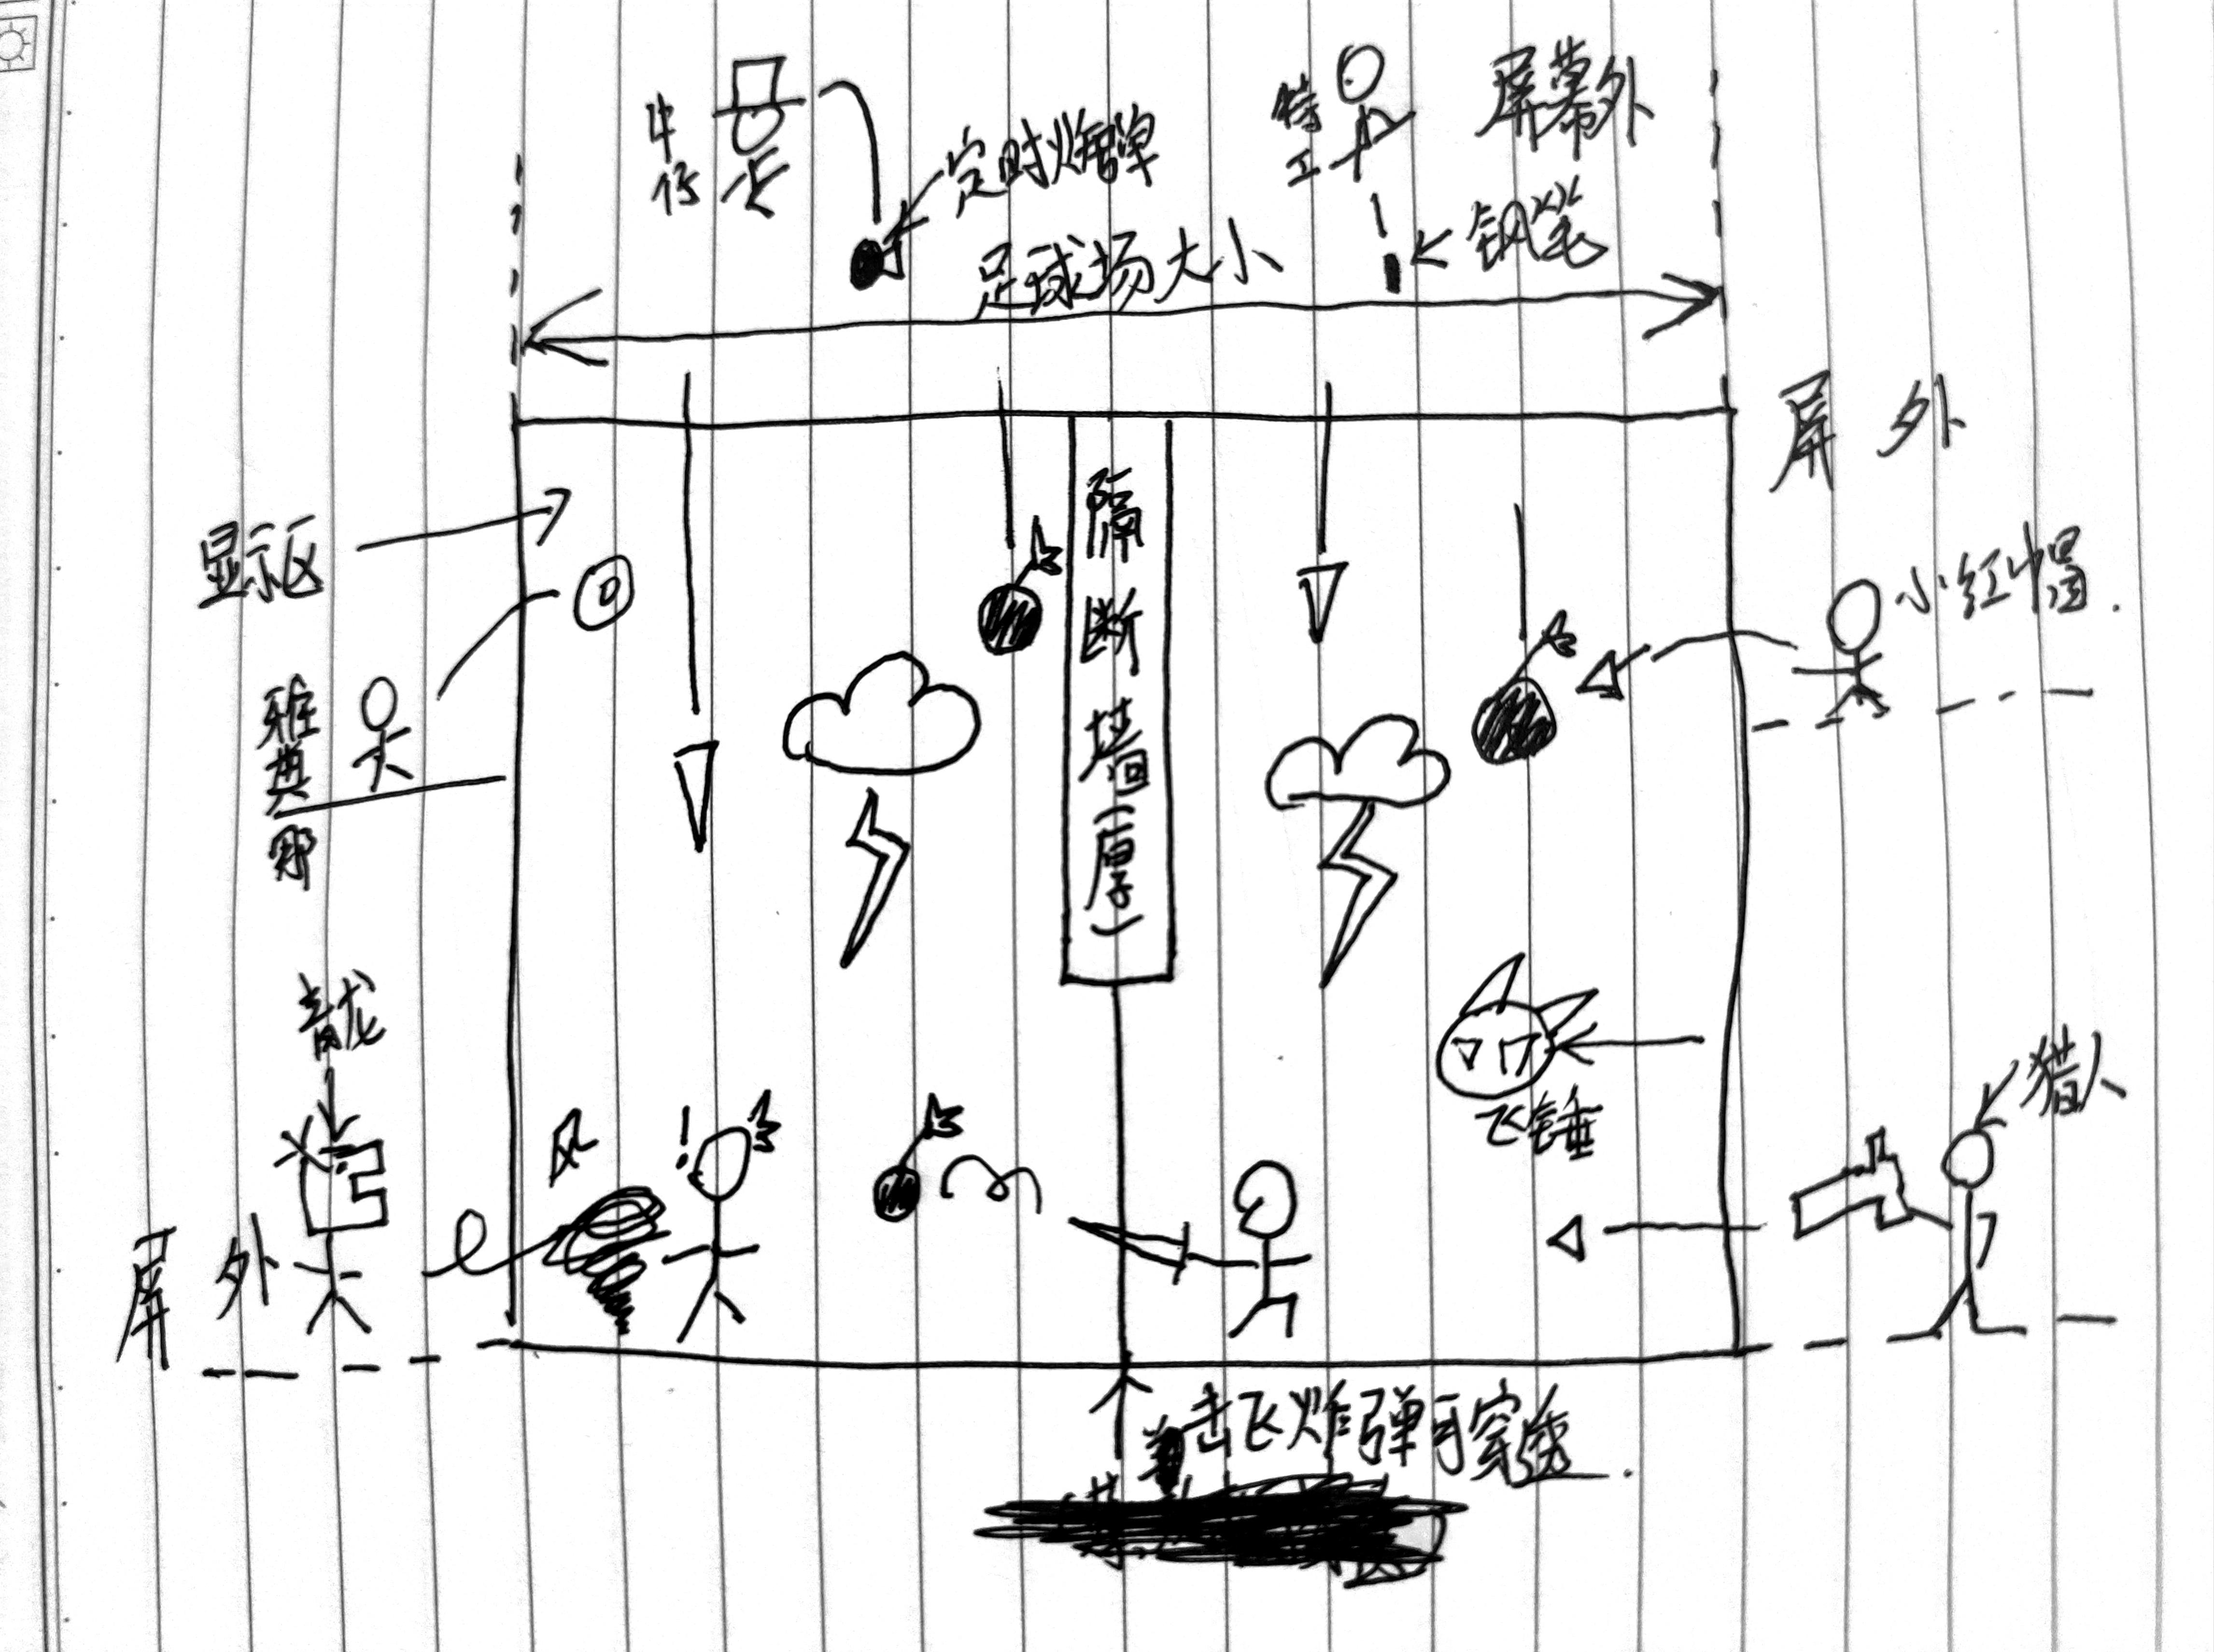 牛仔
特工
屏幕外
定时炸弹
足球场大小
钢笔
屏外
显示区
隔断墙(厚)
小红帽.
雅典那
青龙
飞锤
猎人
风
屏外
击飞炸弹可穿透.